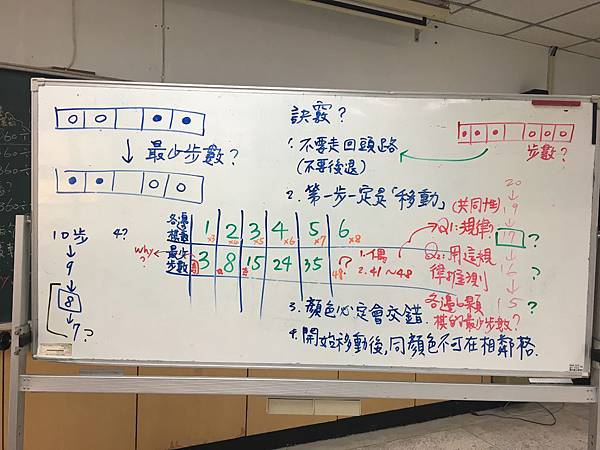 最少步數?
10步
4?
9
8
7?
訣竅?
1. 不要走回頭路
(不要後退)
2. 第一步一定是「移動」
各邊棋數 1 2 3 4 5 6
x3 x4 x5 x6 x7 x8
why?
最少步數 3 8 15 24 35 ?
48
1. 偶
2. 41~48
3. 顏色必定會交錯.
4. 開始移動後,同顏色不可在相鄰格.
步數?
(共同性)
Q1: 規律?
Q2: 用這規律推測
各邊6顆
棋的最少步數?
20
19
17 ?
16 ?
15 ?